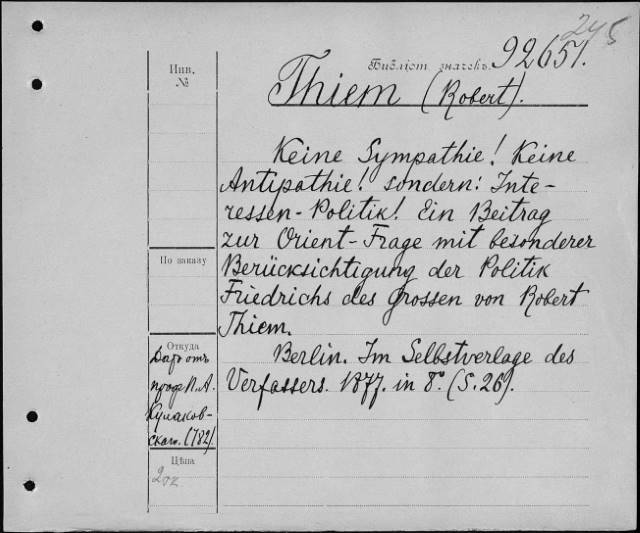 245
Библіот. значекъ. 92651.
Thiem (Robert).
Инв. №
Keine Sympathie! Keine
Antipathie! sondern: Inte-
ressen-Politik! Ein Beitrag
zur Orient-Frage mit besonderer
Berücksichtigung der Politik
Friedrichs des Grossen von Robert
Thiem.
Berlin. Im Selbstverlage des
Verfassers. 1877. in 8°. (S. 26).
По заказу
Откуда
Даръ отъ
проф. П. А.
Кулаков-
скаго. (782).
Цѣна
20к